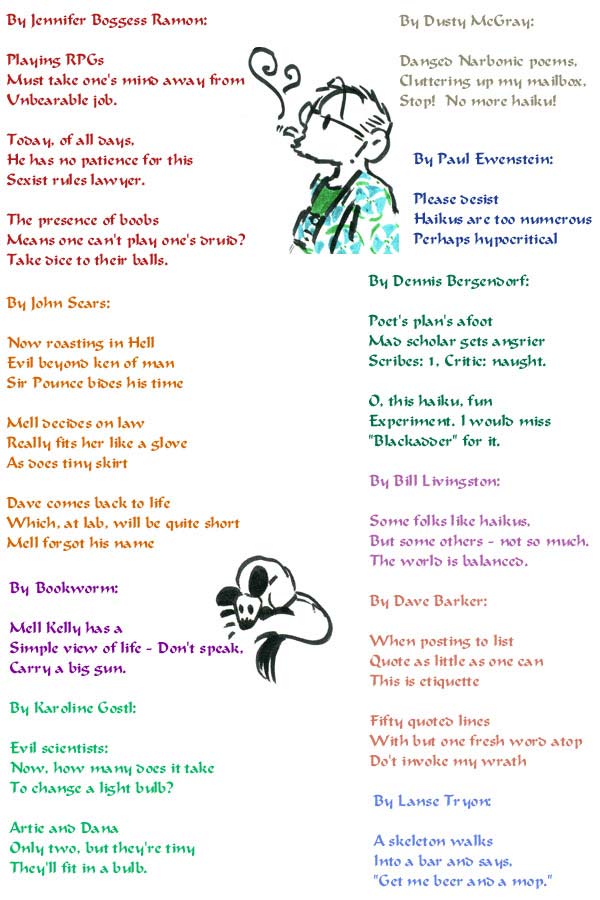 By Jennifer Boggess Ramon:
Playing RPGs
Must take one's mind away from
Unbearable job.
Today, of all days,
He has no patience for this
Sexist rules lawyer.
The presence of boobs
Means one can't play one's druid?
Take dice to their balls.
By John Sears:
Now roasting in Hell
Evil beyond ken of man
Sir Pounce bides his time
Mell decides on law
Really fits her like a glove
As does tiny skirt
Dave comes back to life
Which, at lab, will be quite short
Mell forgot his name
By Bookworm:
Mell Kelly has a
Simple view of life - Don't speak,
Carry a big gun.
By Karoline Gostl:
Evil scientists:
Now, how many does it take
To change a light bulb?
Artie and Dana
Only two, but they're tiny
They'll fit in a bulb.
By Dusty McGray:
Danged Narbonic poems,
Cluttering up my mailbox,
Stop! No more haiku!
By Paul Ewenstein:
Please desist
Haikus are too numerous
Perhaps hypocritical
By Dennis Bergendorf:
Poet's plan's afoot
Mad scholar gets angrier
Scribes: 1, Critic: naught.
O, this haiku, fun
Experiment. I would miss
"Blackadder" for it.
By Bill Livingston:
Some folks like haikus,
But some others - not so much.
The world is balanced.
By Dave Barker:
When posting to list
Quote as little as one can
This is etiquette
Fifty quoted lines
With but one fresh word atop
Do't invoke my wrath
By Lanse Tryon:
A skeleton walks
Into a bar and says,
"Get me beer and a mop."